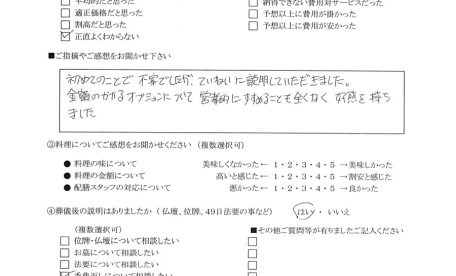 □ 平均的だと思った
□ 納得できない費用対サービスだった
□ 適正価格だと思った
□ 予想以上に費用が掛かった
□ 割高だと思った
□ 予想以上に費用が安かった
☑ 正直よくわからない
■ご指摘やご感想をお聞かせ下さい
初めてのことで不安でしたが、ていねいに説明していただきました。
金額のかかるオプションについて営業的にすすめることも全くなく、好感を持ち
ました
③料理についてご感想をお聞かせください（複数選択可）
● 料理の味について 美味しくなかった← 1・2・3・4・5 →美味しかった
● 料理の金額について 高いと感じた← 1・2・3・4・5 →割安と感じた
● 配膳スタッフの対応について 悪かった← 1・2・3・4・5 →良かった
④葬儀後の説明はありましたか（仏壇、位牌、49日法要の事など） はい・いいえ
（複数選択可）
■その他ご質問等が有りましたご記入ください
□ 位牌・仏壇について相談したい
□ お墓について相談したい
□ 法要について相談したい
☑ 香典返しについて相談したい